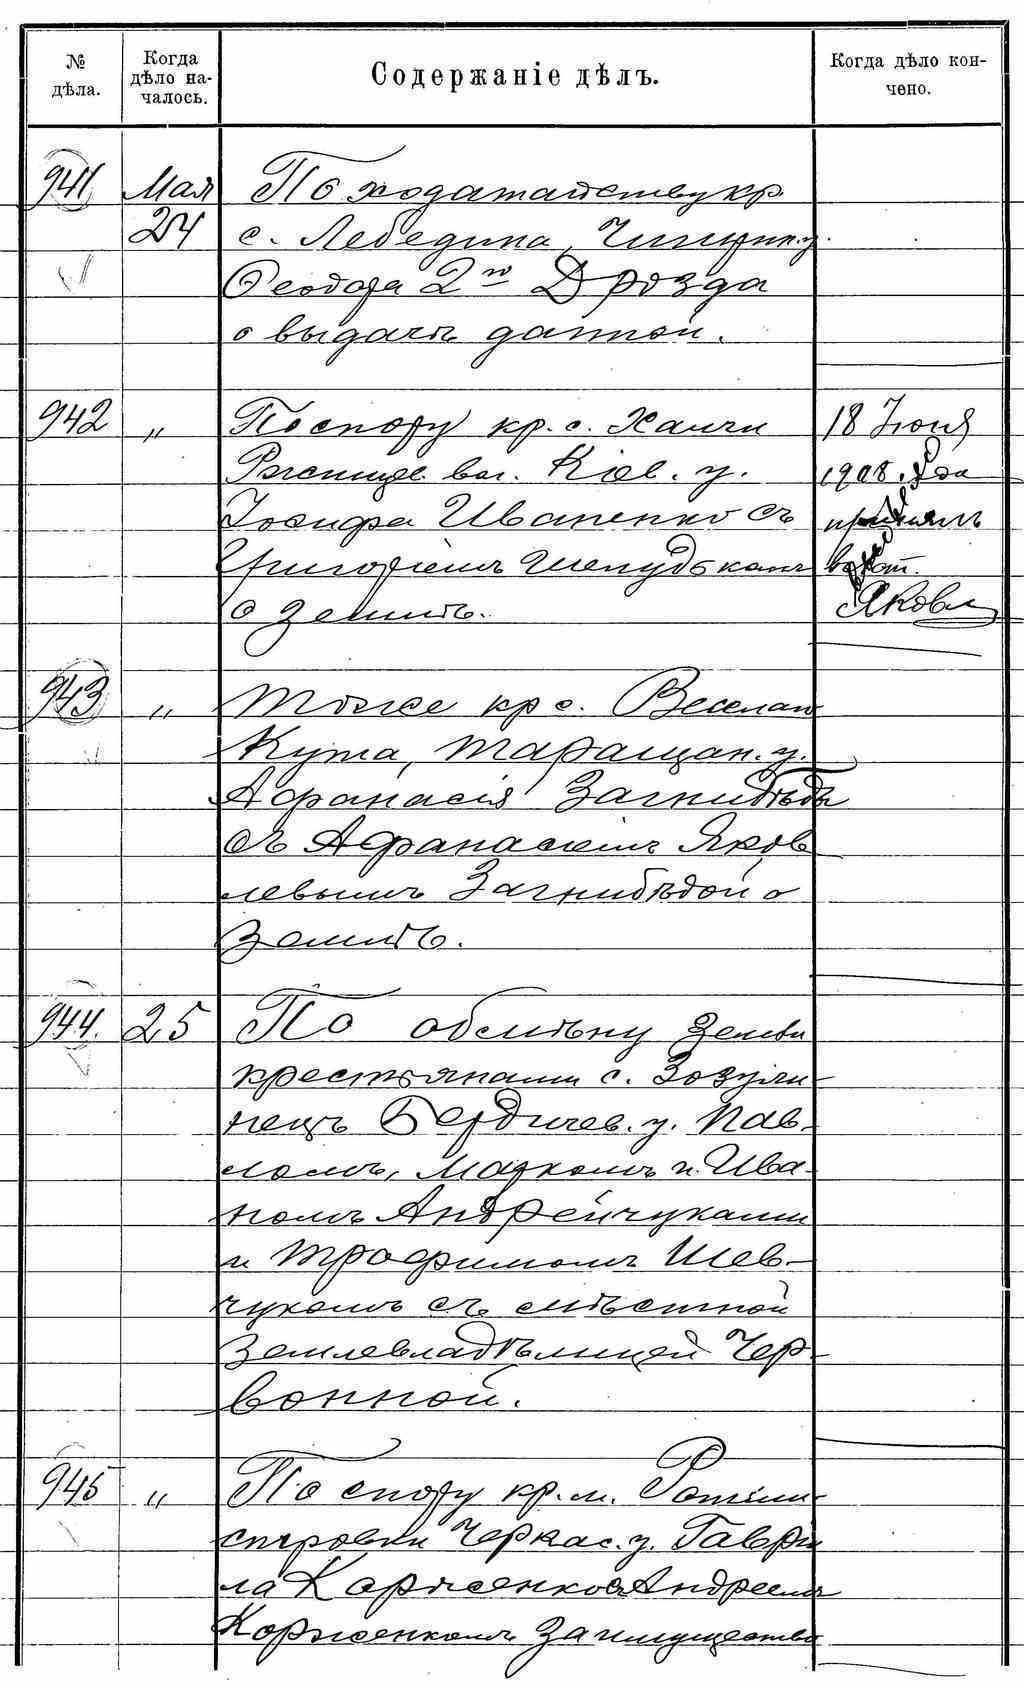 № дѣла.
Когда дѣло на-
чалось.
Содержаніе дѣлъ.
Когда дѣло кон-
чено.
941 Мая По ходатайству кр.
24 с. Лебедина, Чигирин. у.
Ѳеодора 2го Дрозда
о выдачѣ данной.
942 " По спору кр. с. Халчи 18 Іюля
Ржищев. вол. Кіев. у. 1908 года
Іосифа Иваненко съ принялъ
Григоріемъ
о землѣ. Яковл
943 " Тоже кр с. Веселаго
Кута, Таращан. у.
Афанасія Загнибѣды
съ Афанасіемъ Яков
левымъ Загнибѣдой о
землѣ.
944. 25 По обмѣну земли
крестьянами с. Зозули-
нецъ Бердичев. у. Пав-
ломъ, Маркомъ и Ива-
номъ Андрейчуками
и Трофимомъ Шев-
чукомъ съ мѣстной
землевладѣлицей Чер-
вонной.
945 " По спору кр. м. Ротми-
стровки Черкас. у. Гаври
ла Корженко съ Андреемъ
Корженкомъ за имущество